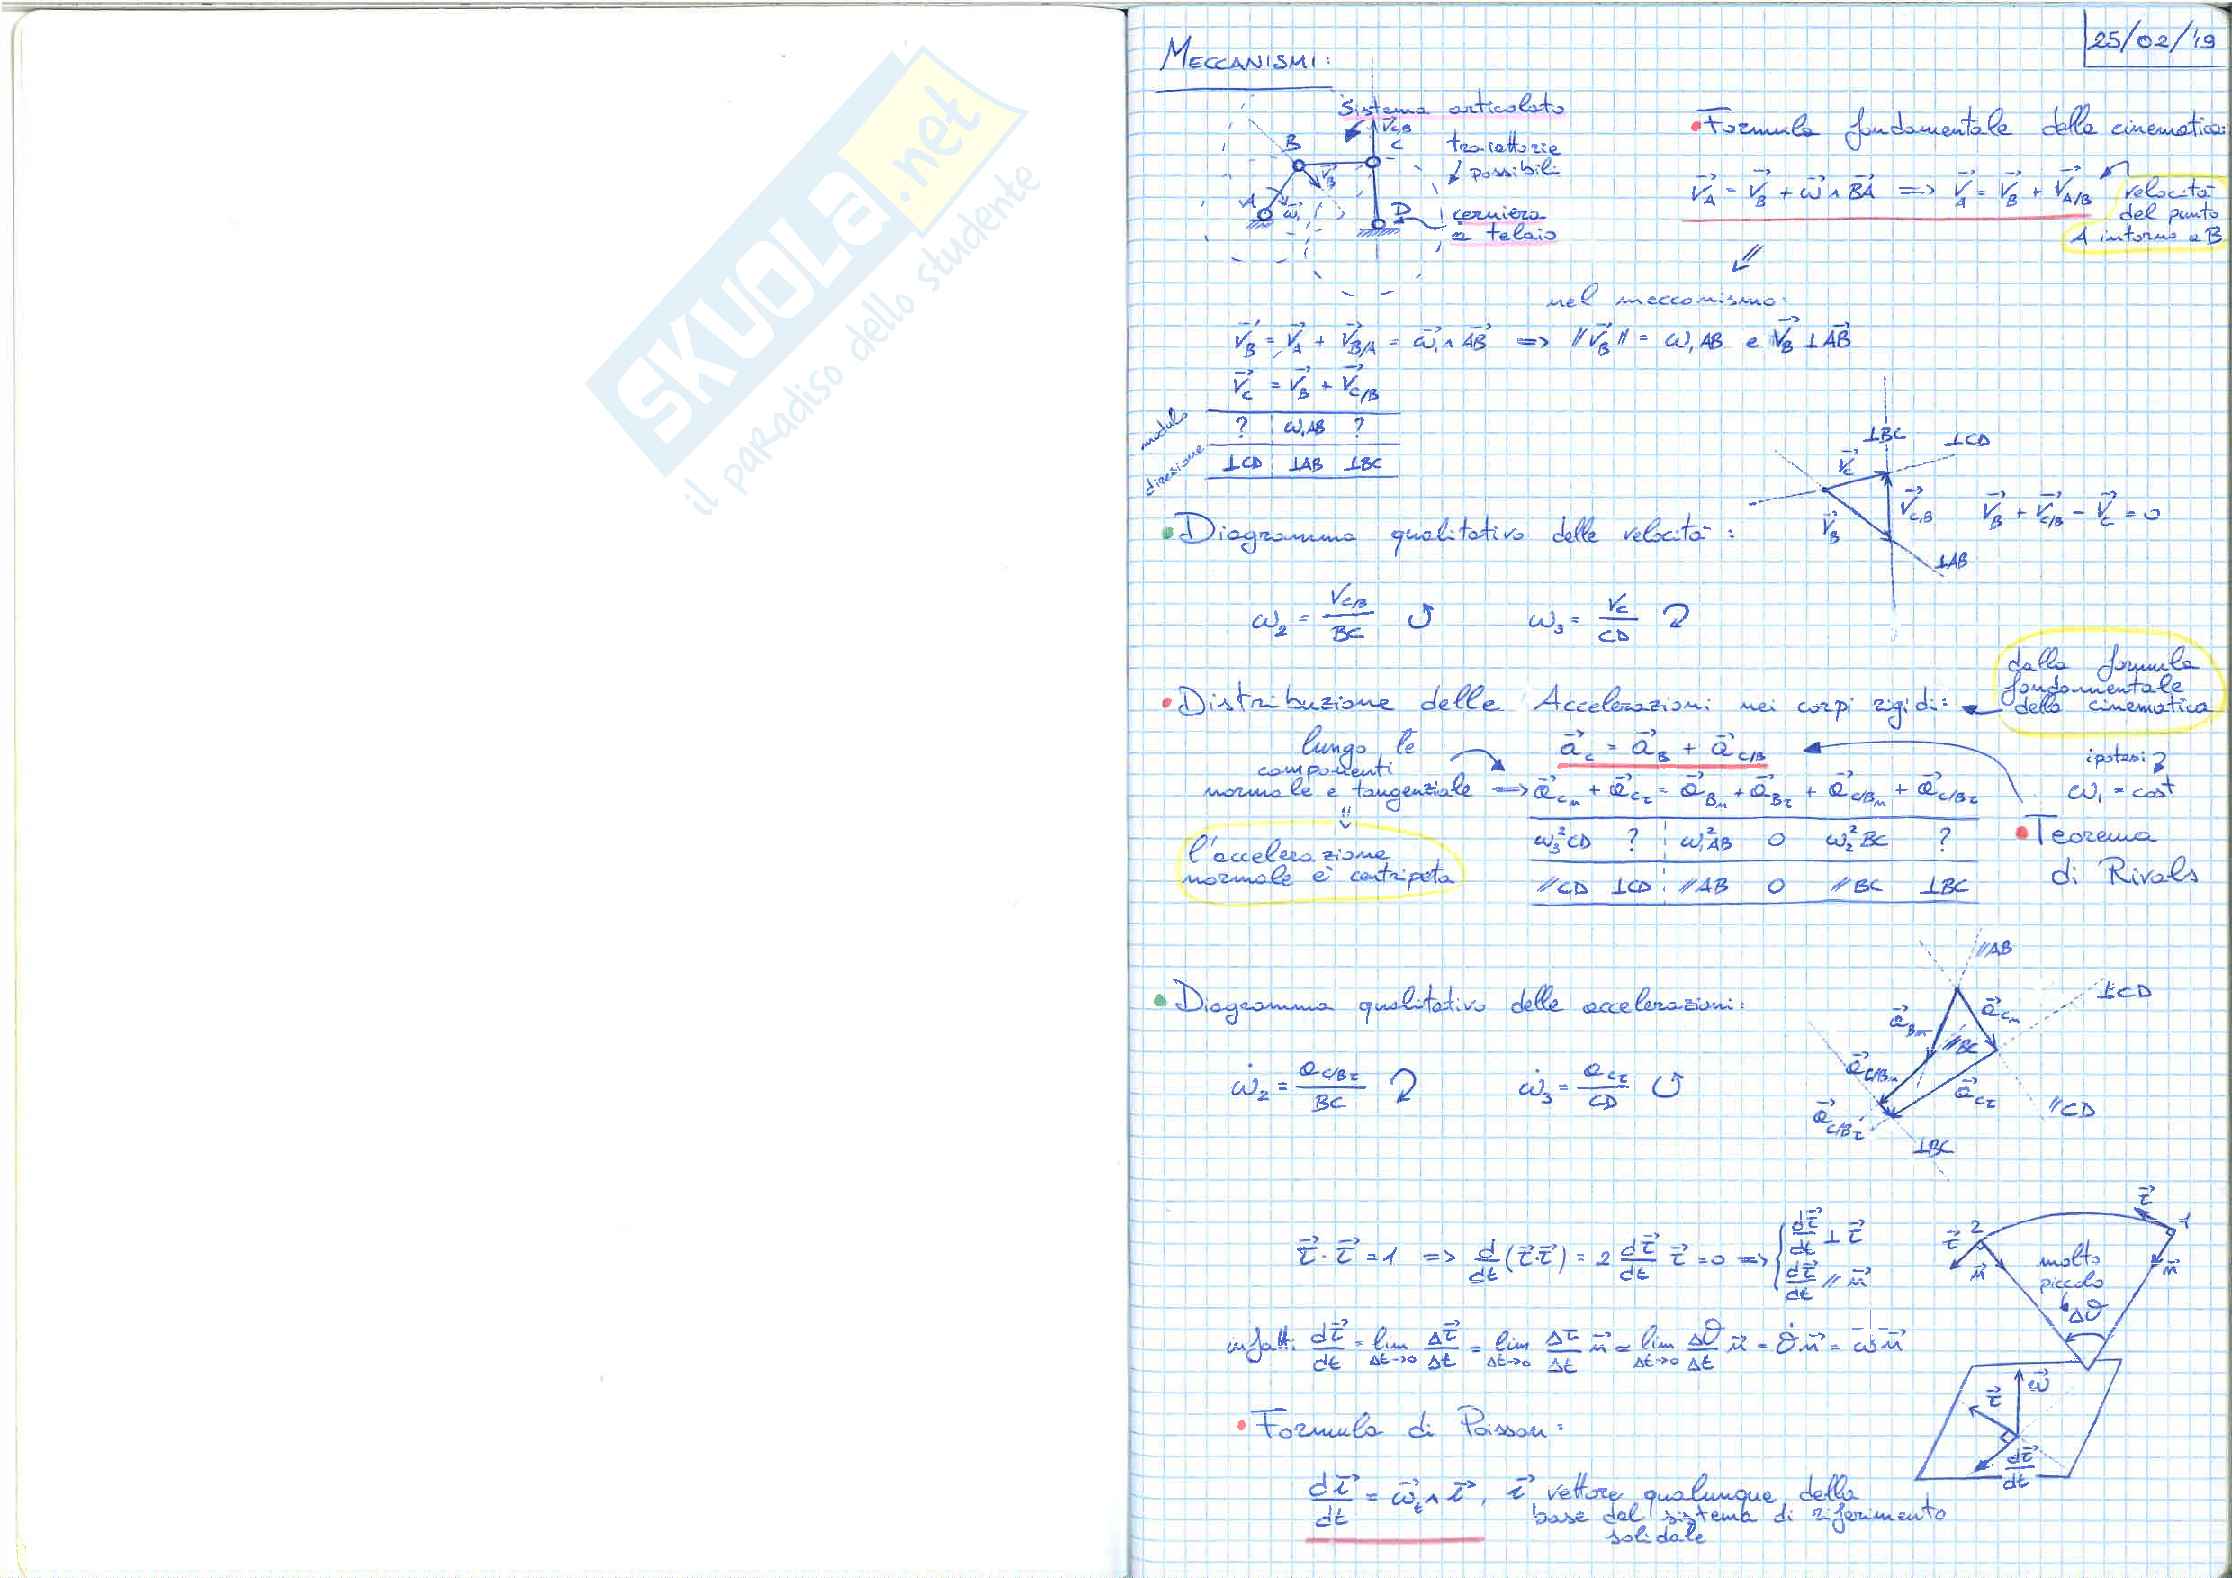 SKUOLA.net
il paradiso dello studente
25/02/'19
MECCANISMI:
Sistema articolato
traiettorie
possibili
cerniera
a telaio
A B C D
• Formula fondamentale della cinematica:
V⃗_A = V⃗_B + ω⃗ ∧ BA⃗ => V⃗_A = V⃗_B + V⃗_A/B
velocità
del punto
A intorno a B
nel meccanismo:
V⃗_B = V⃗_A + V⃗_B/A = ω⃗₁ ∧ AB⃗ => ‖V⃗_B‖ = ω₁AB e V⃗_B ⊥ AB⃗
V⃗_C = V⃗_B + V⃗_C/B
modulo ? ω₁AB ?
direzione ⊥CD ⊥AB ⊥BC
• Diagramma qualitativo delle velocità:
⊥BC ⊥CD
V⃗_C V⃗_C/B V⃗_B
⊥AB
V⃗_B + V⃗_C/B - V⃗_C = 0
ω₂ = V_C/B / BC ↺ ω₃ = V_C / CD ↻
• Distribuzione delle Accelerazioni nei corpi rigidi:
dalla formula
fondamentale
della cinematica
a⃗_C = a⃗_B + a⃗_C/B
lungo le
componenti
normale e tangenziale => a⃗_Cn + a⃗_Cτ = a⃗_Bn + a⃗_Bτ + a⃗_C/Bn + a⃗_C/Bτ
ipotesi
ω₁ = cost
ω₃²CD ? ω₁²AB 0 ω₂²BC ?
//CD ⊥CD //AB 0 //BC ⊥BC
l'accelerazione
normale è centripeta
• Teorema
di Rivals
• Diagramma qualitativo delle accelerazioni:
//AB
⊥CD
a⃗_Bn a⃗_Cn
//BC
a⃗_C/Bn a⃗_Cτ
a⃗_C/Bτ //CD
⊥BC
ω̇₂ = a_C/Bτ / BC ↻ ω̇₃ = a_Cτ / CD ↺
τ⃗ · τ⃗ = 1 => d/dt (τ⃗·τ⃗) = 2 dτ⃗/dt τ⃗ = 0 => { dτ⃗/dt ⊥ τ⃗
dτ⃗/dt // n⃗
τ⃗ 2 n⃗ τ⃗ 1 n⃗
molto
piccolo
Δϑ
infatti: dτ⃗/dt = lim Δt→0 Δτ⃗/Δt = lim Δt→0 Δτ/Δt n⃗ = lim Δt→0 Δϑ/Δt n⃗ = ϑ̇ n⃗ = ω n⃗
τ⃗ ω⃗ dτ⃗/dt
• Formula di Poisson:
dτ⃗/dt = ω⃗_t ∧ τ⃗, τ⃗ vettore qualunque della
base del sistema di riferimento
solidale